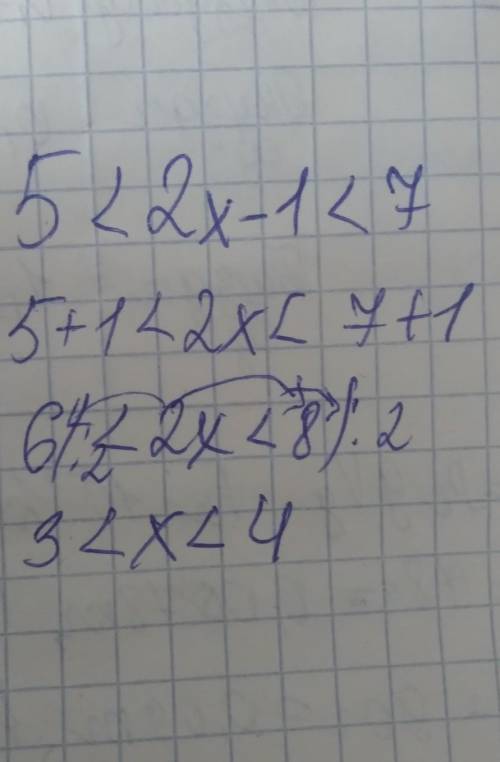 5 < 2x - 1 < 7
5 + 1 < 2x < 7 + 1
6 | : 2 < 2x < 8 | : 2
3 < x < 4